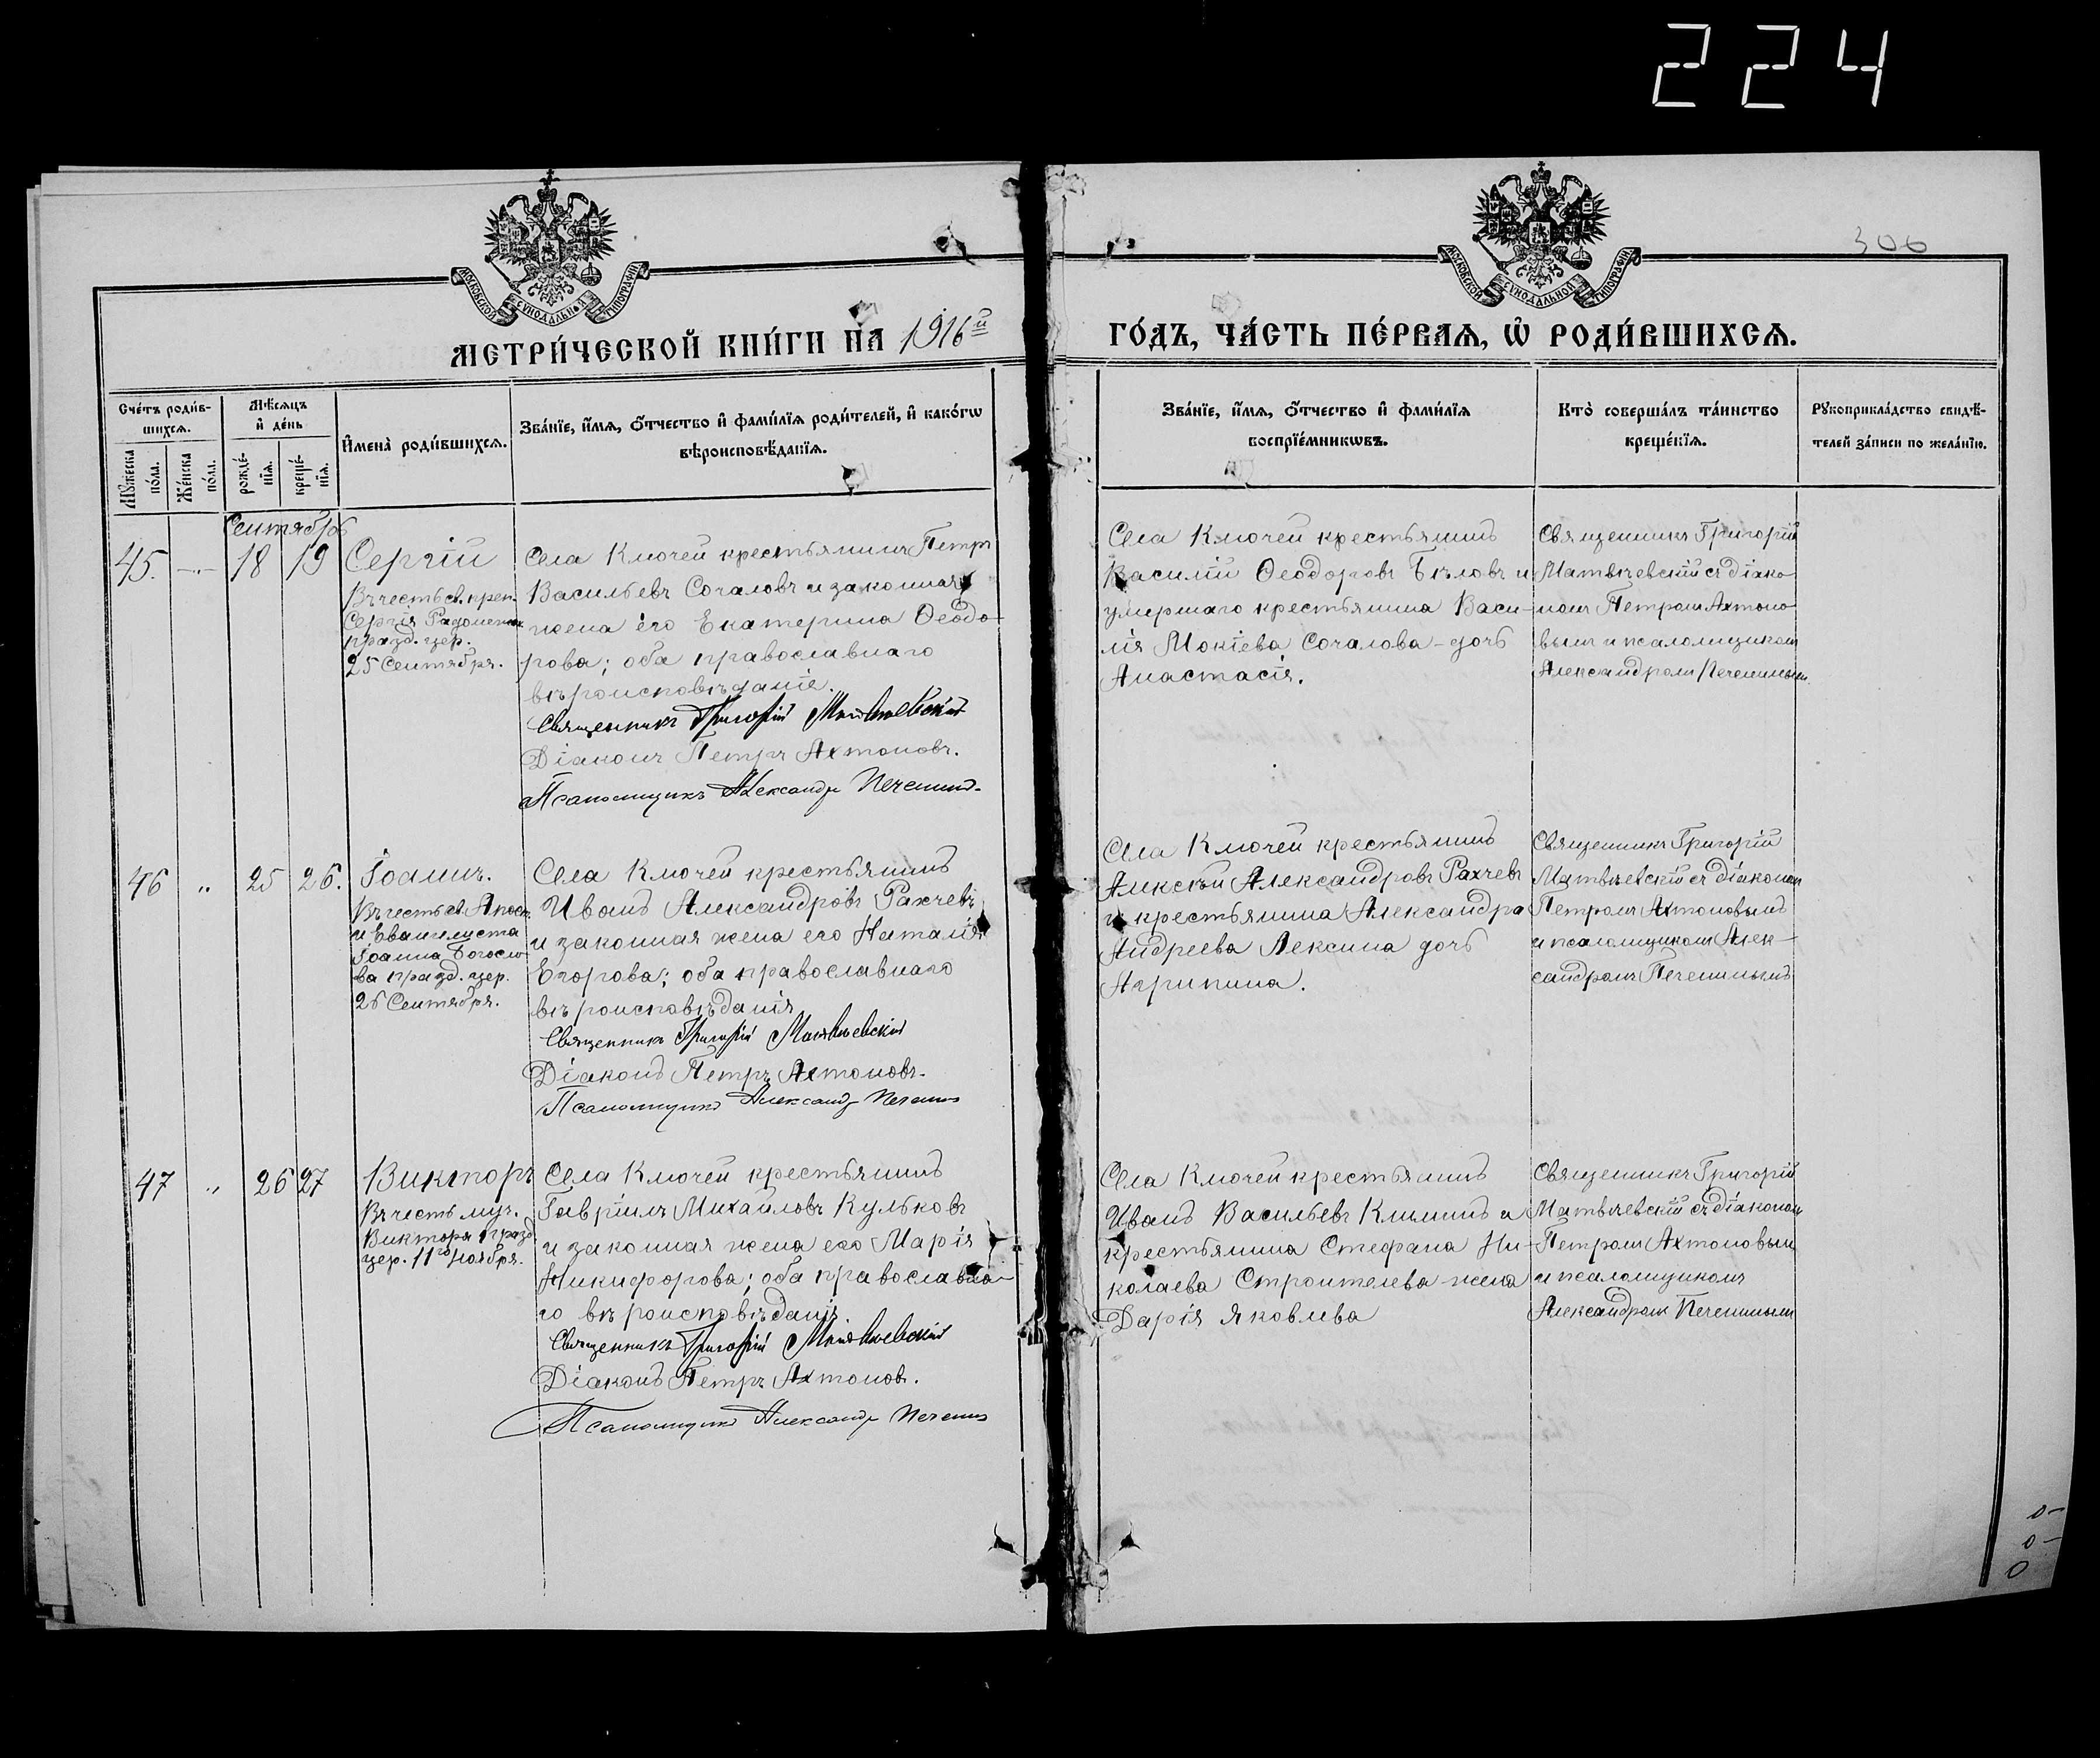 224
306
МОСКОВСКОЙ СУНОДАЛЬНОЙ ТИПОГРАФІИ
МОСКОВСКОЙ СУНОДАЛЬНОЙ ТИПОГРАФІИ
МЕТРИ́ЧЕСКОЙ КНИ́ГИ НА 1916й
ГО́ДЪ, ЧА́СТЬ ПЕ́РВАЯ, Ѡ РОДИ́ВШИХСЯ.
Сче́тъ роди́в-
шихся.
Мѣ́сяцъ
и де́нь
Му́жеска
по́ла.
Же́нска
по́ла.
рожде́-
нїя.
креще́-
нїя.
Имена̀ роди́вшихся.
Зва́нїе, и́мя, о́тчество и фами́лїя роди́телей, и како́гѡ
вѣроисповѣ́данїя.
Зва́нїе, и́мя, о́тчество и фами́лїя
воспрїе́мникѡвъ.
Кто̀ соверша́лъ та́инство
креще́нїя.
Рукоприкла́дство свидѣ́-
телей за́писи по жела́нїю.
Сентябрь
45. -"- 18 19 Сергій
Въ честь св. преп.
Сергія Радонеж
празд. цер.
25 Сентября.
Села Ключей крестьянинъ Петръ
Васильевъ Сочаловъ и законная
жена его Екатерина Ѳеодо-
рова; оба православнаго
вѣроисповѣданіе.
Священникъ Григорій Матвѣевскій
Діаконъ Петръ Ахтоновъ.
Псаломщикъ Александръ Печенинъ.
Села Ключей крестьянинъ
Василій Ѳеодоровъ Бѣловъ и
умершаго крестьянина Васи-
лія Мокіева Сочалова - дочь
Анастасія.
Священникъ Григорій
Матвѣевскій съ діако-
номъ Петромъ Ахтоно-
вымъ и псаломщикомъ
Александромъ Печенинымъ
46 " 25 26. Іоаннъ.
Въ честь св. Апост.
и Евангелиста
Іоанна Богосло-
ва празд. цер.
26 Сентября.
Села Ключей крестьянинъ
Иванъ Александровъ Рахчевъ
и законная жена его Наталія
Егорова; оба православнаго
вѣроисповѣданія
Священникъ Григорій Матвѣевскій
Діаконъ Петръ Ахтоновъ.
Псаломщикъ Александръ Печенинъ
Села Ключей крестьянинъ
Алексѣй Александровъ Рахчевъ
и крестьянина Александра
Андреева Лексина дочь
Агрипина.
Священникъ Григорій
Матвѣевскій съ діакономъ
Петромъ Ахтоновымъ
и псаломщикомъ Алек-
сандромъ Печенинымъ
47 " 26 27 Викторъ
Въ честь муч.
Виктора празд.
цер. 11го Ноября.
Села Ключей крестьянинъ
Гавріилъ Михайловъ Кульковъ
и законная жена его Марія
Никифорова; оба православна-
го вѣроисповѣданія
Священникъ Григорій Матвѣевскій
Діаконъ Петръ Ахтоновъ.
Псаломщикъ Александръ Печенинъ
Села Ключей крестьянинъ
Иванъ Васильевъ Климинъ и
крестьянина Стефана Ни-
колаева Строителева жена
Дарія Яковлева
Священникъ Григорій
Матвѣевскій съ діакономъ
Петромъ Ахтоновым
и псаломщикомъ
Александромъ Печенинымъ